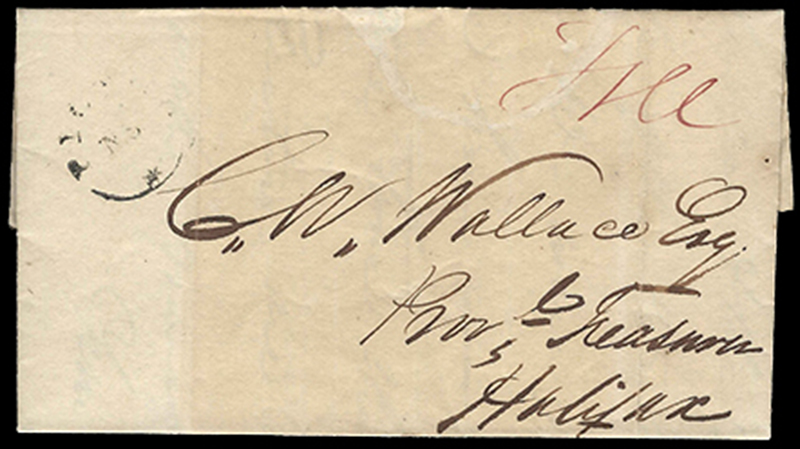 Free
C. W. Wallace Esq.
Prov.l Treasurer
Halifax